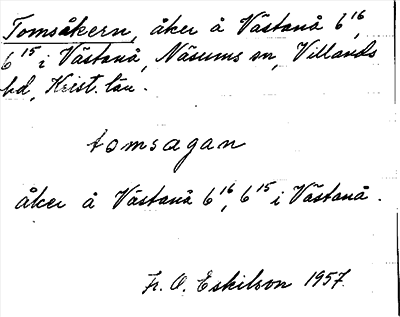 Tomsåkern, åker å Västanå 6¹⁶,
6¹⁵ i Västanå, Näsums sn, Villands
hd, Krist. län.
tomsagan
åker å Västanå 6¹⁶, 6¹⁵ i Västanå.
Fr. O. Eskilson 1957